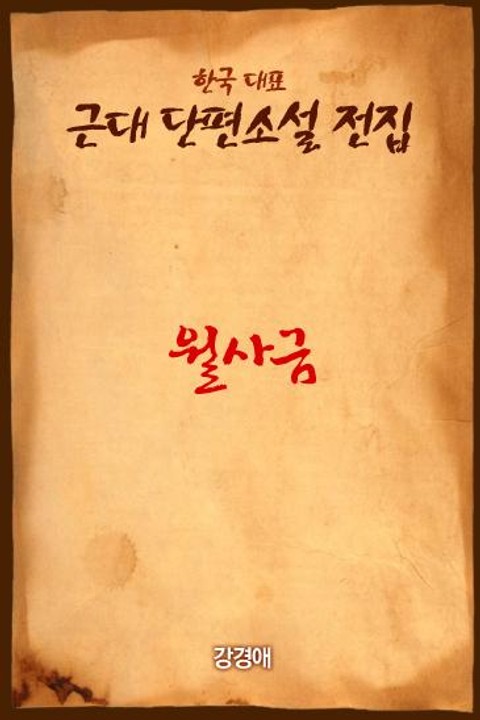 한국 대표
근대 단편소설 전집
월사금
강경애